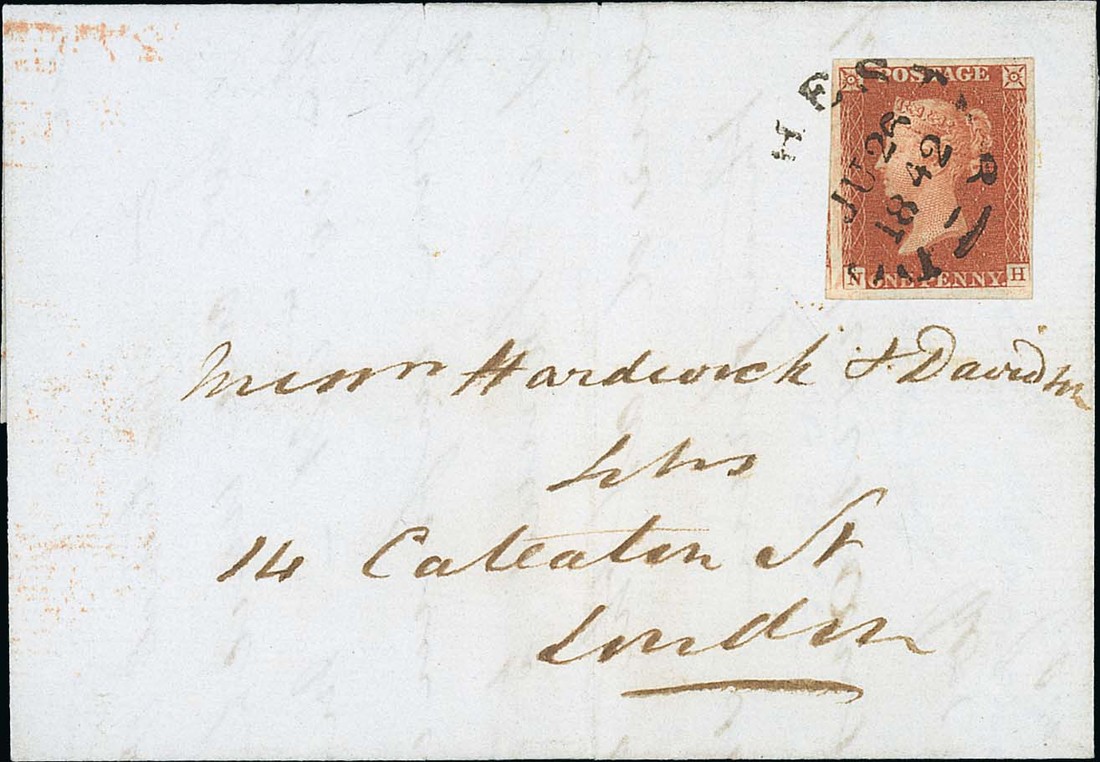 POSTAGE
JU 24
1842
N ONE PENNY. H
Messrs Hardwick & Davidson
14 Cateaton St
London